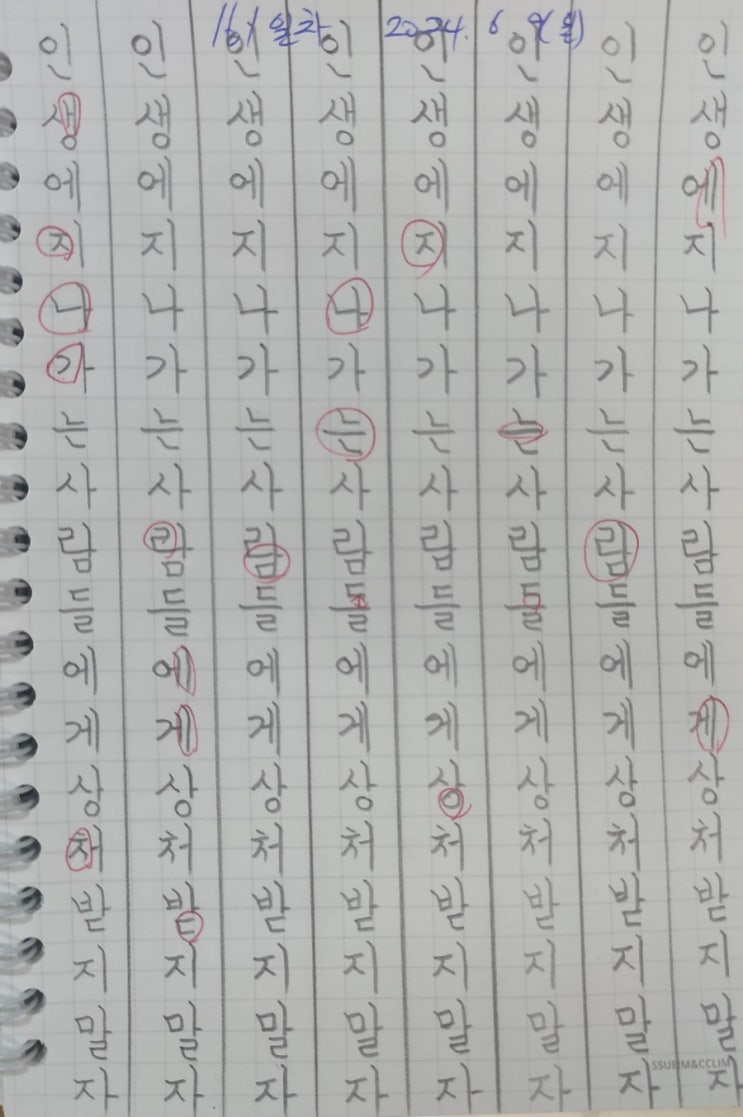 161일차 2024. 6. 9(일)
인생에 지나가는 사람들에게 상처받지 말자
인생에 지나가는 사람들에게 상처받지 말자
인생에 지나가는 사람들에게 상처받지 말자
인생에 지나가는 사람들에게 상처받지 말자
인생에 지나가는 사람들에게 상처받지 말자
인생에 지나가는 사람들에게 상처받지 말자
인생에 지나가는 사람들에게 상처받지 말자
인생에 지나가는 사람들에게 상처받지 말자
SSUEIM&CCLIM